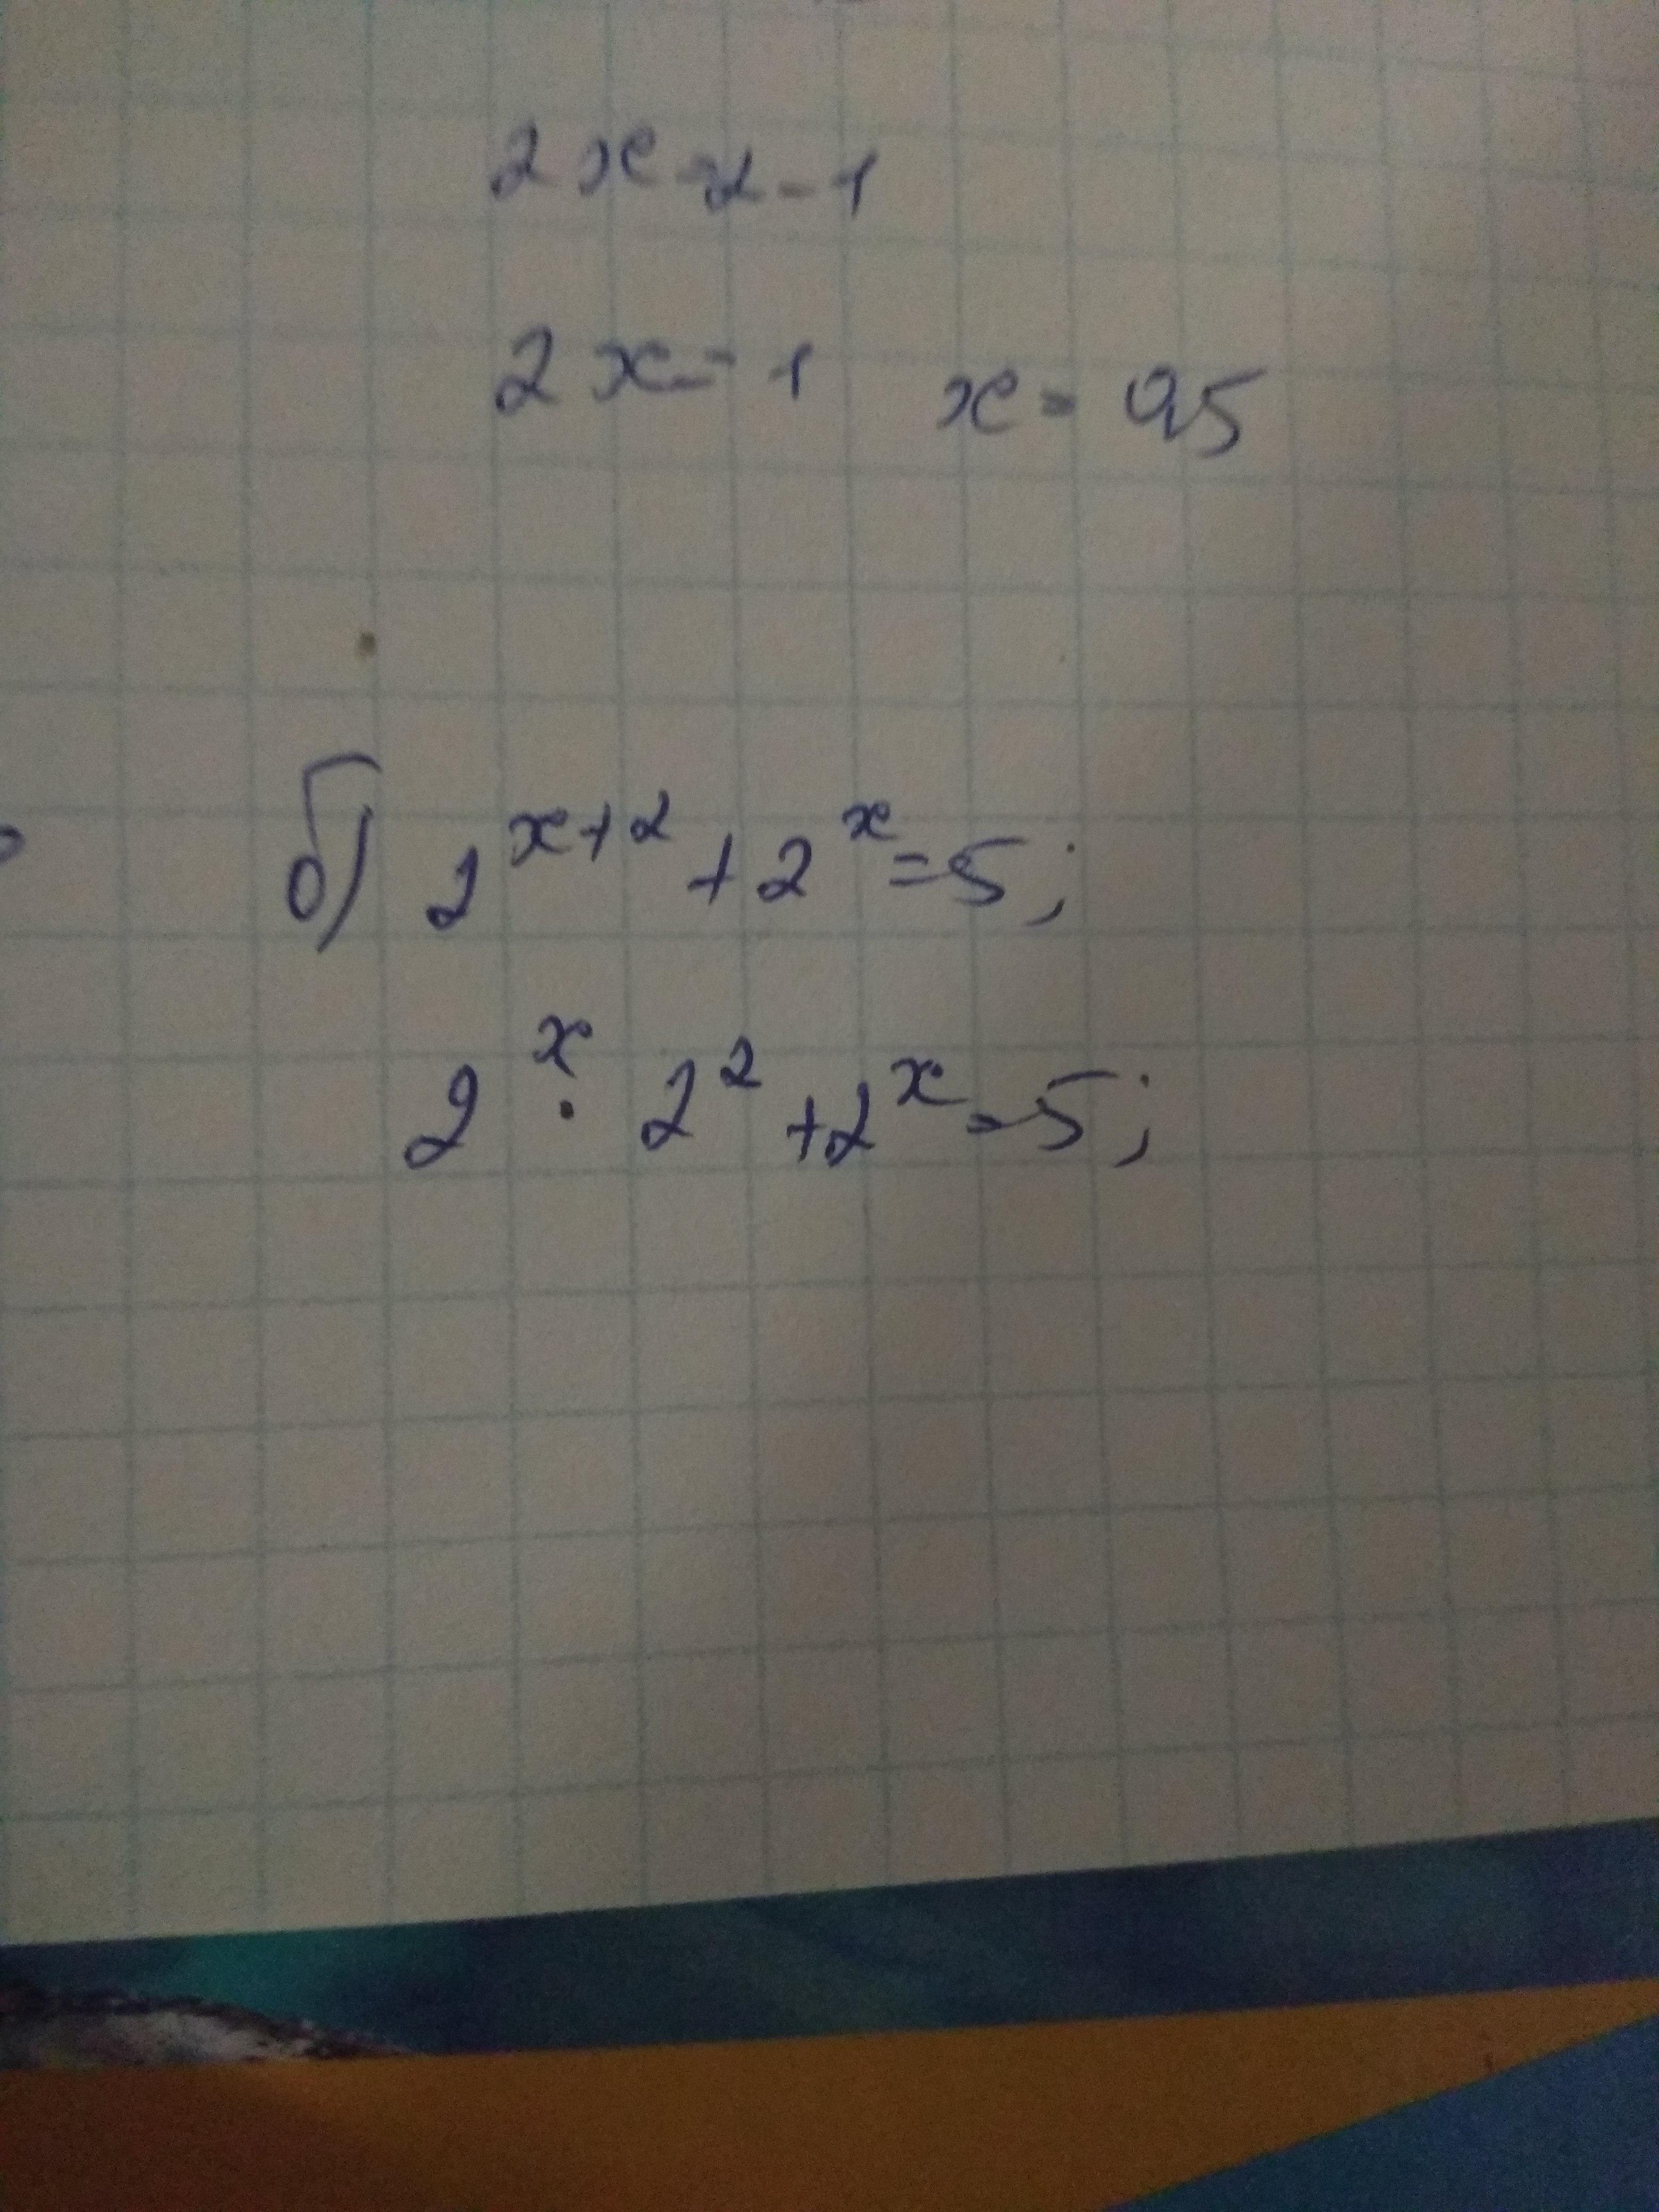 2x=2-1
2x=1 x=0,5
б) 2^{x+2}+2^x=5;
2^x · 2^2+2^x=5;